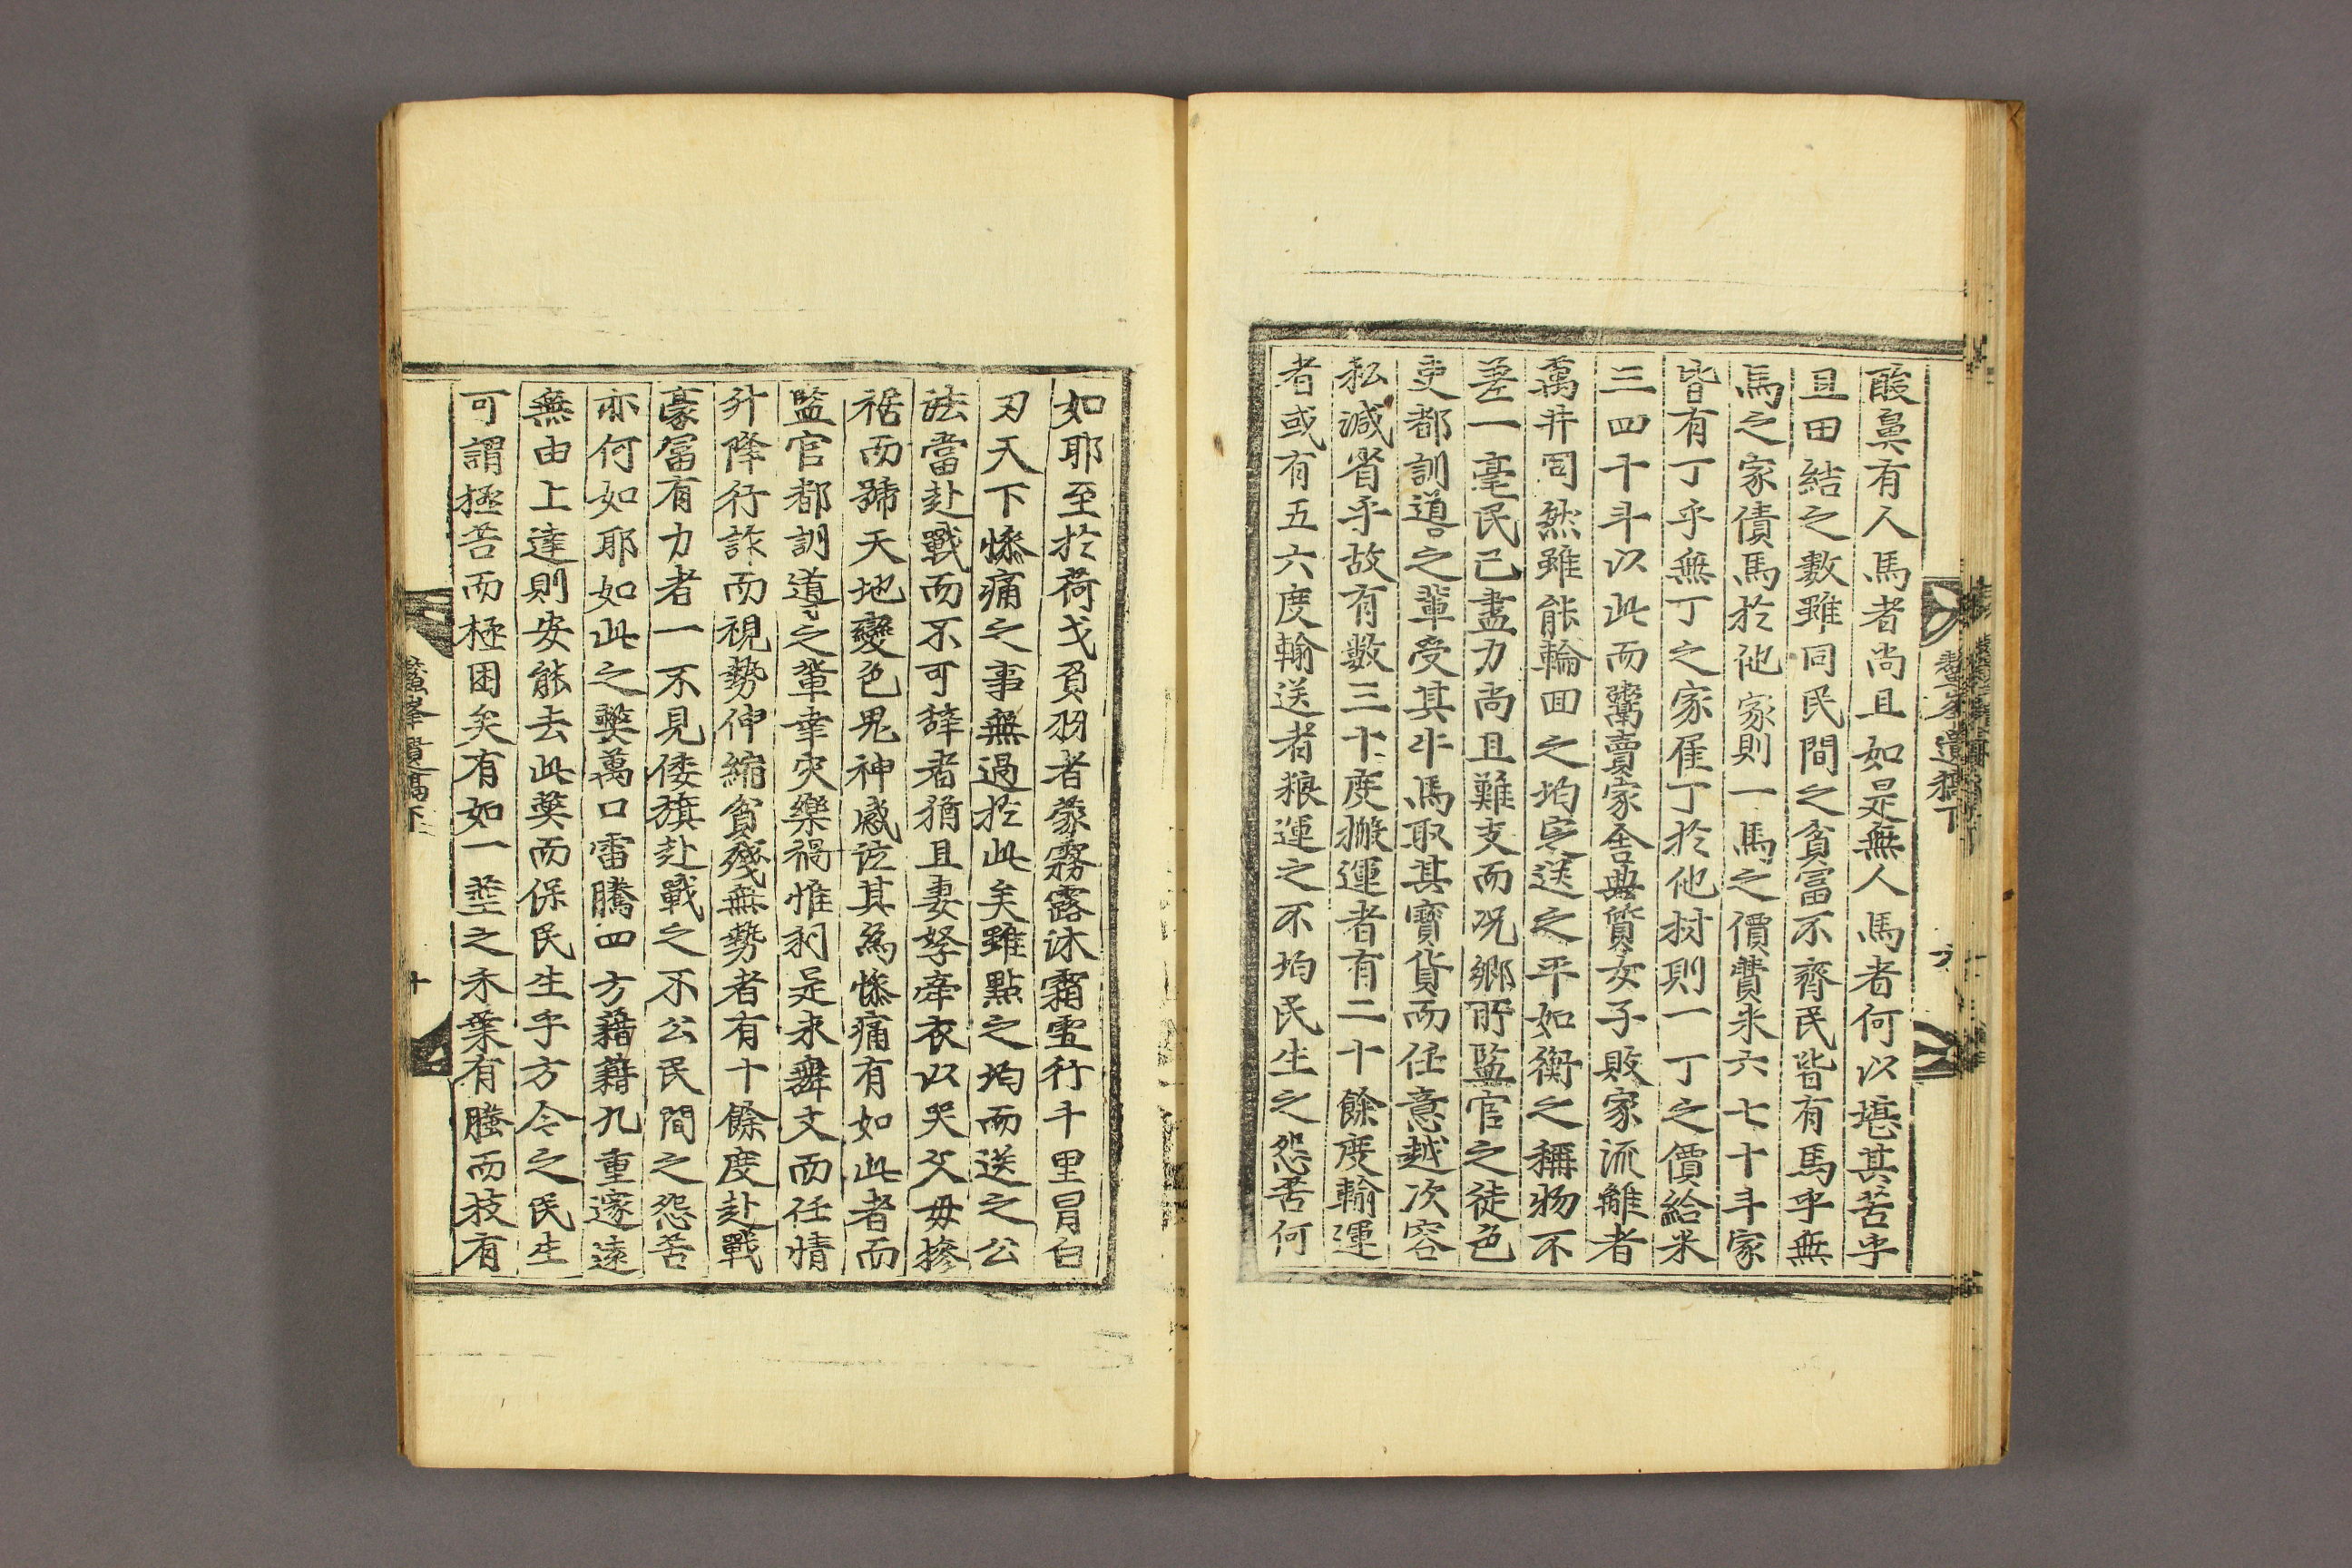 酸鼻有人馬者尚且如是無人馬者何以堪其苦乎
且田結之數雖同民間之貧富不齊民皆有馬乎無
馬之家債馬於他家則一馬之價費米六七十斗家
皆有丁乎無丁之家雇丁於他村則一丁之價給米
三四十斗以此而鬻賣家舍典質女子敗家流離者
萬井同然雖能輪回之均定送之平如衡之稱物不
差一毫民已盡力尚且難支而况鄉所監官之徒色
吏都訓導之輩受其牛馬取其寶貨而任意越次容
私減省乎故有數三十度搬運者有二十餘度輸運
者或有五六度輸送者粮運之不均民生之怨苦何
鰲峯遺稿下
如耶至於荷戈負羽者蒙霧露沐霜雪行千里冒白
刃天下慘痛之事無過於此矣雖點之均而送之公
法當赴戰而不可辞者猶且妻孥牽衣以哭父母摻
裾而蹄天地變色鬼神感泣其爲慘痛有如此者而
監官都訓道之輩幸灾樂禍惟利是求舞文而任情
升降行詐而視勢伸縮貧殘無勢者有十餘度赴戰
豪富有力者一不見倭旗赴戰之不公民間之怨苦
亦何如耶如此之弊萬口雷騰四方藉藉九重邃遠
無由上達則安能去此弊而保民生乎方今之民生
可謂極苦而極困矣有如一莖之禾葉有螣而枝有
鰲峯遺稿下
十